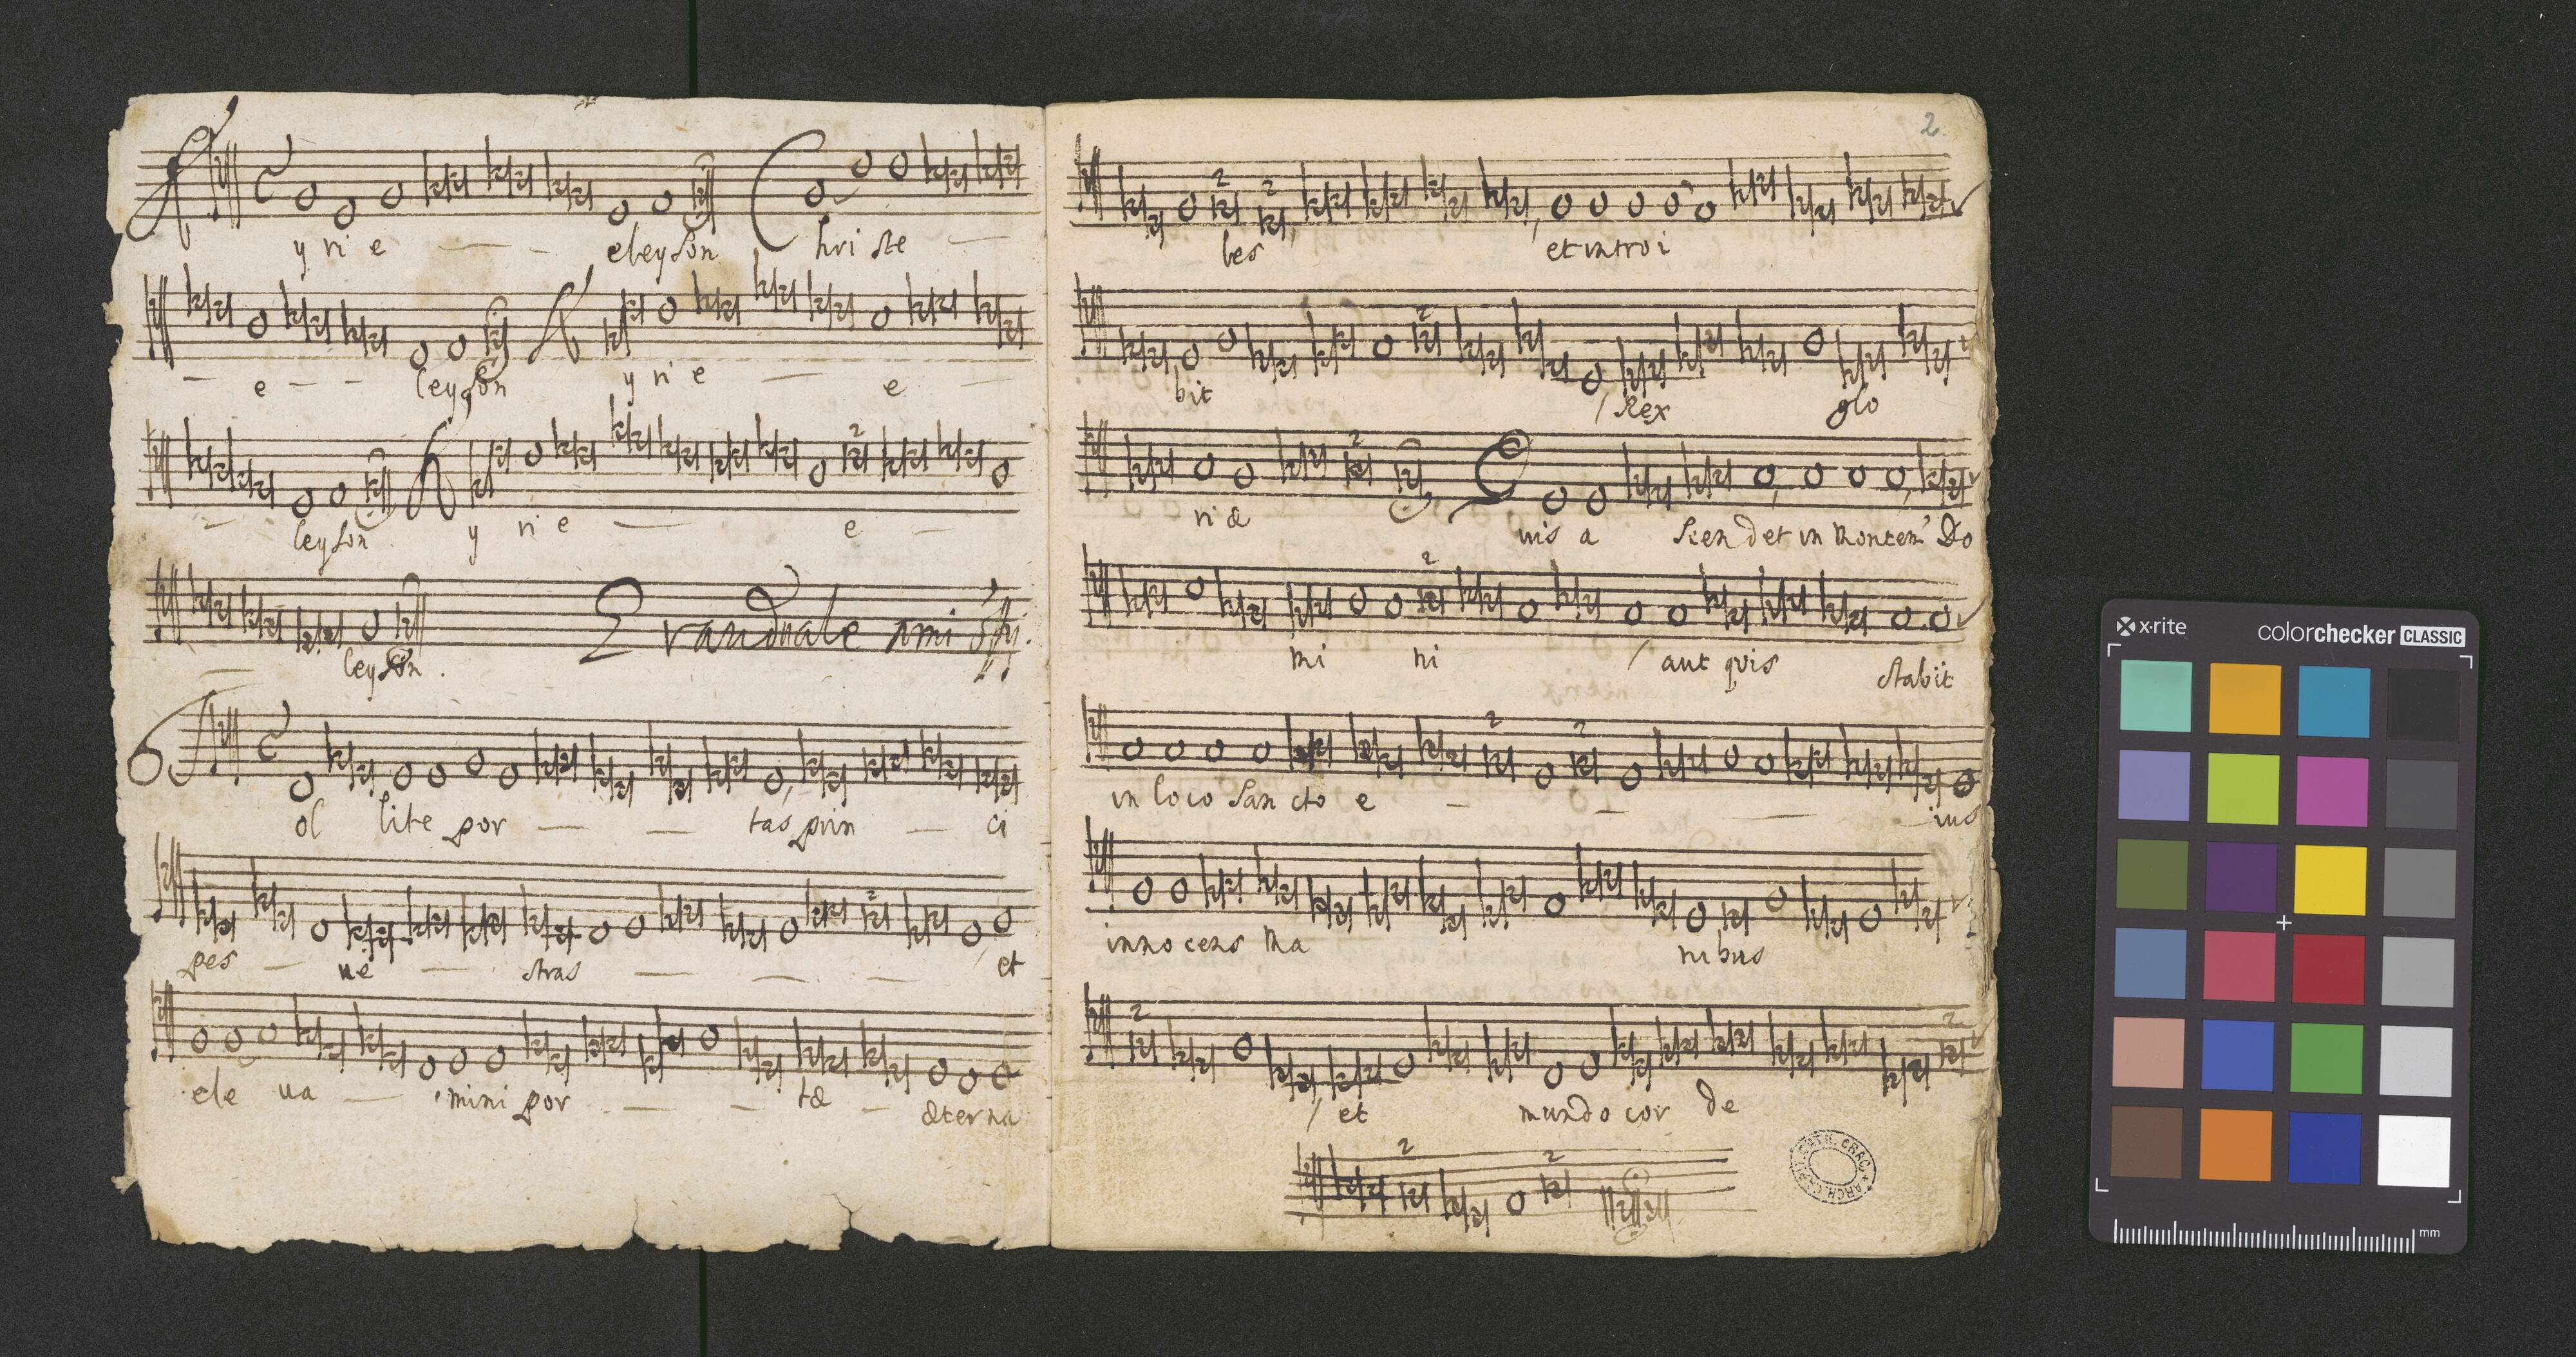 Kyrie eleyson Christe
e leyson Kyrie e
leyson Kyrie e
leyson. Graduale
Tol lite por tas prin ci
pes ve stras et
ele va mini por tæ æterna
2
2 2
les et introi
2
bit Rex glo
2
riæ Quis a scendet in montem Do
2
mi ni aut quis stabit
2 2
in loco sancto e ius
innocens ma nibus
2 2
et mundo cor de
2 2
ARCH. CAPIT. CATH. CRAC.
x-rite colorchecker CLASSIC
mm